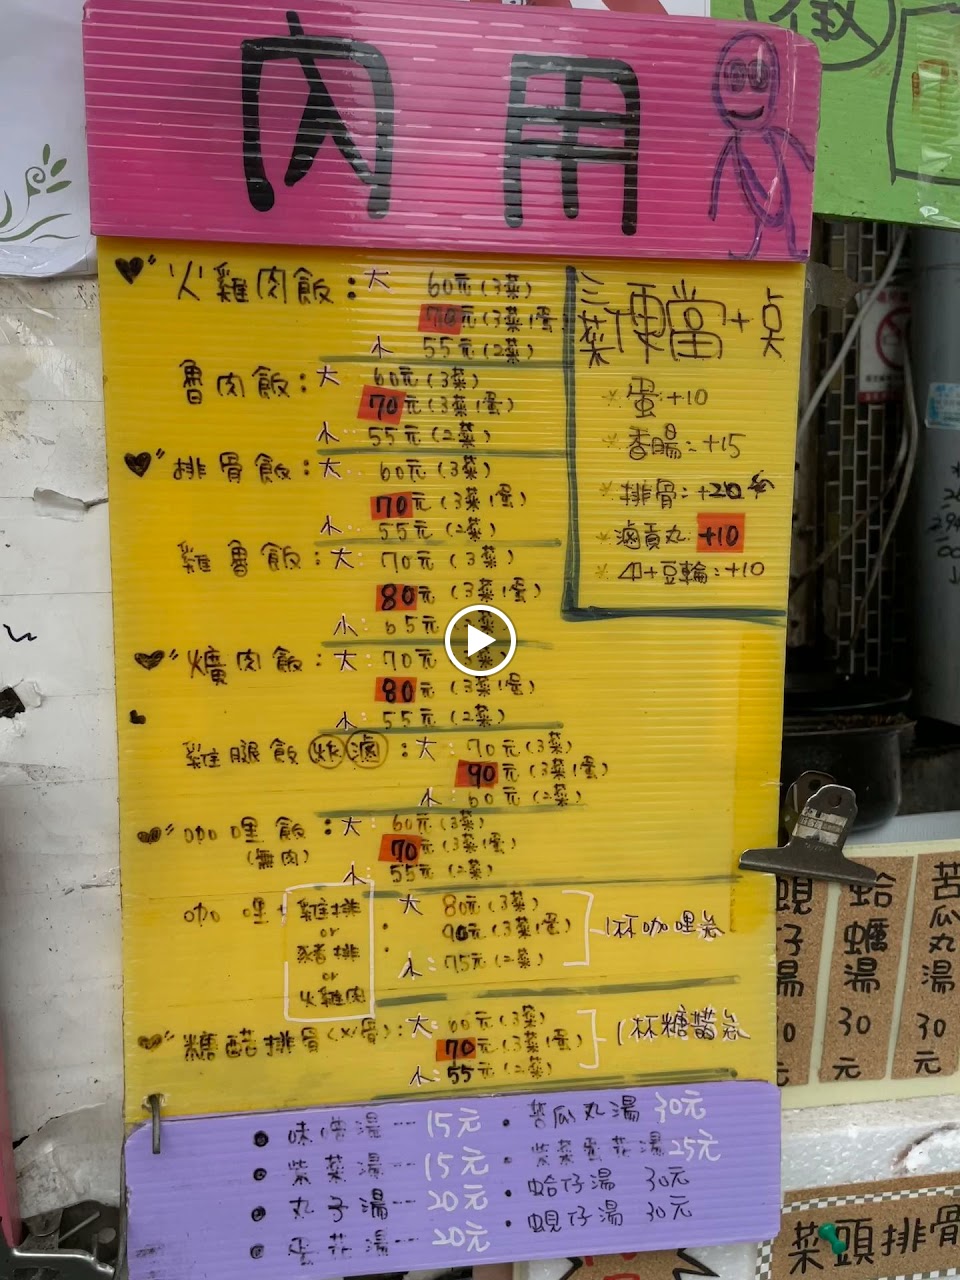 內用
火雞肉飯：大 60元(3菜)
70元(3菜1蛋
小 55元(2菜)
魯肉飯：大 60元(3菜)
70元(3菜1蛋)
小 55元(2菜)
排骨飯：大 60元(3菜)
70元(3菜1蛋)
小 55元(2菜)
雞魯飯：大 70元(3菜)
80元(3菜1蛋)
小：65元
爌肉飯：大：70元(3菜)
80元(3菜1蛋)
小：55元(2菜)
雞腿飯 炸 滷：大：70元(3菜)
90元(3菜1蛋)
小 60元(2菜)
咖哩飯：大：60元(3菜)
(無肉) 70元(3菜1蛋)
小：55元(2菜)
咖哩+ 雞排 or 豬排 or 火雞肉
大 80元(3菜)
90元(3菜1蛋)
小：75元(2菜)
1杯咖哩
糖醋排骨 大：60元(3菜)
70元(3菜1蛋)
小：55元(2菜)
1杯糖醬
三菜便當+点
蛋+10
香腸：+15
排骨：+20
滷貢丸 +10
豆輪：+10
味噌湯 15元
紫菜湯 15元
丸子湯 20元
蛋花湯 20元
苦瓜丸湯 30元
紫菜蛋花湯 25元
蛤仔湯 30元
蜆仔湯 30元
徵
蜆仔湯
蛤蠣湯 30元
苦瓜丸湯 30元
菜頭排骨